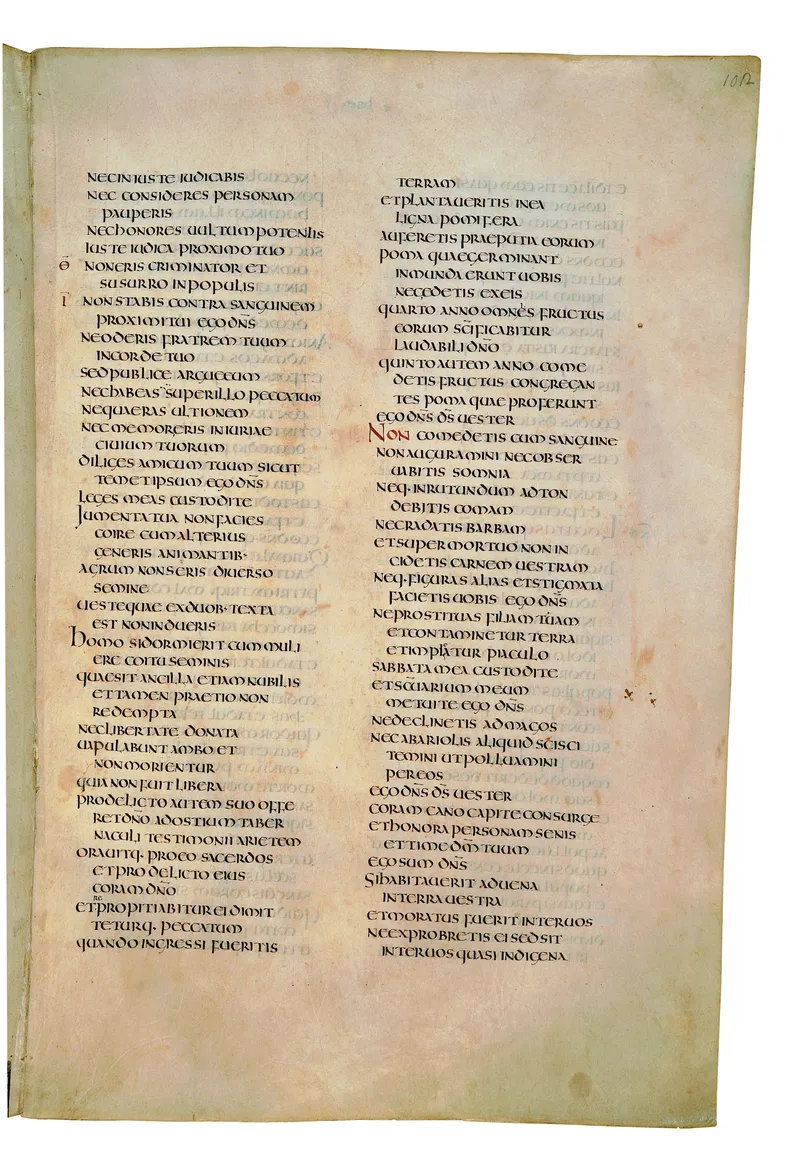 102
NECINIUSTE IUDICABIS
NEC CONSIDERES PERSONAM
PAUPERIS
NECHONORES UULTUMPOTENTIS
IUSTE IUDICA PROXIMOTUO
NONERIS CRIMINATOR ET
SUSURRO INPOPULIS
NONSTABIS CONTRA SANGUINEM
PROXIMITUI EGODN̄S
NEODERIS FRATREM TUUM
INCORDETUO
SEDPUBLICE ARGUEEUM
NECHABEAS SUPERILLO PECCATUM
NEQUAERAS ULTIONEM
NECMEMORERIS INIURIAE
CIUIUM TUORUM
DILIGES AMICUM TUUM SICUT
TEMETIPSUM EGODN̄S
LEGES MEAS CUSTODITE
IUMENTATUA NONFACIES
COIRE CUMALTERIUS
GENERIS ANIMANTIB·
AGRUM NONSERIS DIUERSO
SEMINE
UESTEQUAE EXDUOB·TEXTA
EST NONINDUERIS
HOMO SIDORMIERIT CUMMULI
ERE COITUSEMINIS
QUAESIT ANCILLA ETIAMNUBILIS
ETTAMEN PRAETIO NON
REDEMPTA
NECLIBERTATE DONATA
UAPULABUNT AMBO ET
NONMORIENTUR
QUIANONFUIT LIBERA
PRODELICTO AUTEM SUO OFFE
RETDN̄O ADOSTIUM TABER
NACULI TESTIMONII ARIETEM
ORAUITQ· PROEO SACERDOS
ETPRODELICTO EIUS
CORAMDN̄O
ETPROPITIABITUREI DIMIT
TETURQ· PECCATUM
QUANDO INGRESSI FUERITIS
TERRAM
ETPLANTAUERITIS INEA
LIGNA POMIFERA
AUFERETIS PRAEPUTIA EORUM
POMA QUAEGERMINANT
INMUNDA ERUNT UOBIS
NECEDETIS EXEIS
QUARTO ANNO OMNES FRUCTUS
EORUM SC̄IFICABITUR
LAUDABILI DN̄O
QUINTO AUTEM ANNO COME
DETIS FRUCTUS CONGREGAN
TES POMA QUAE PROFERUNT
EGODN̄S D̄S UESTER
NON COMEDETIS CUM SANGUINE
NONAUGURAMINI NECOBSER
UABITIS SOMNIA
NEQ· INRUTUNDUM ADTON
DEBITIS COMAM
NECRADATIS BARBAM
ETSUPERMORTUO NON IN
CIDETIS CARNEM UESTRAM
NEQ·FIGURAS ALIAS ETSTIGMATA
FACIETIS UOBIS EGO DN̄S
NEPROSTITUAS FILIAM TUAM
ETCONTAMINETUR TERRA
ETIMPLEATUR PIACULO
SABBATA MEA CUSTODITE
ETSC̄UARIUM MEUM
METUITE EGO DN̄S
NEDECLINETIS ADMAGOS
NECABARIOLIS ALIQUID SCISCI
TEMINI UTPOLLUAMINI
PEREOS
EGODN̄S D̄S UESTER
CORAM CANO CAPITE CONSURGE
ETHONORA PERSONAM SENIS
ETTIME DM̄TUUM
EGOSUM DN̄S
SIHABITAUERIT ADUENA
INTERRAUESTRA
ETMORATUS FUERIT INTERUOS
NEEXPROBRETIS EI SEDSIT
INTERUOS QUASI INDIGENA